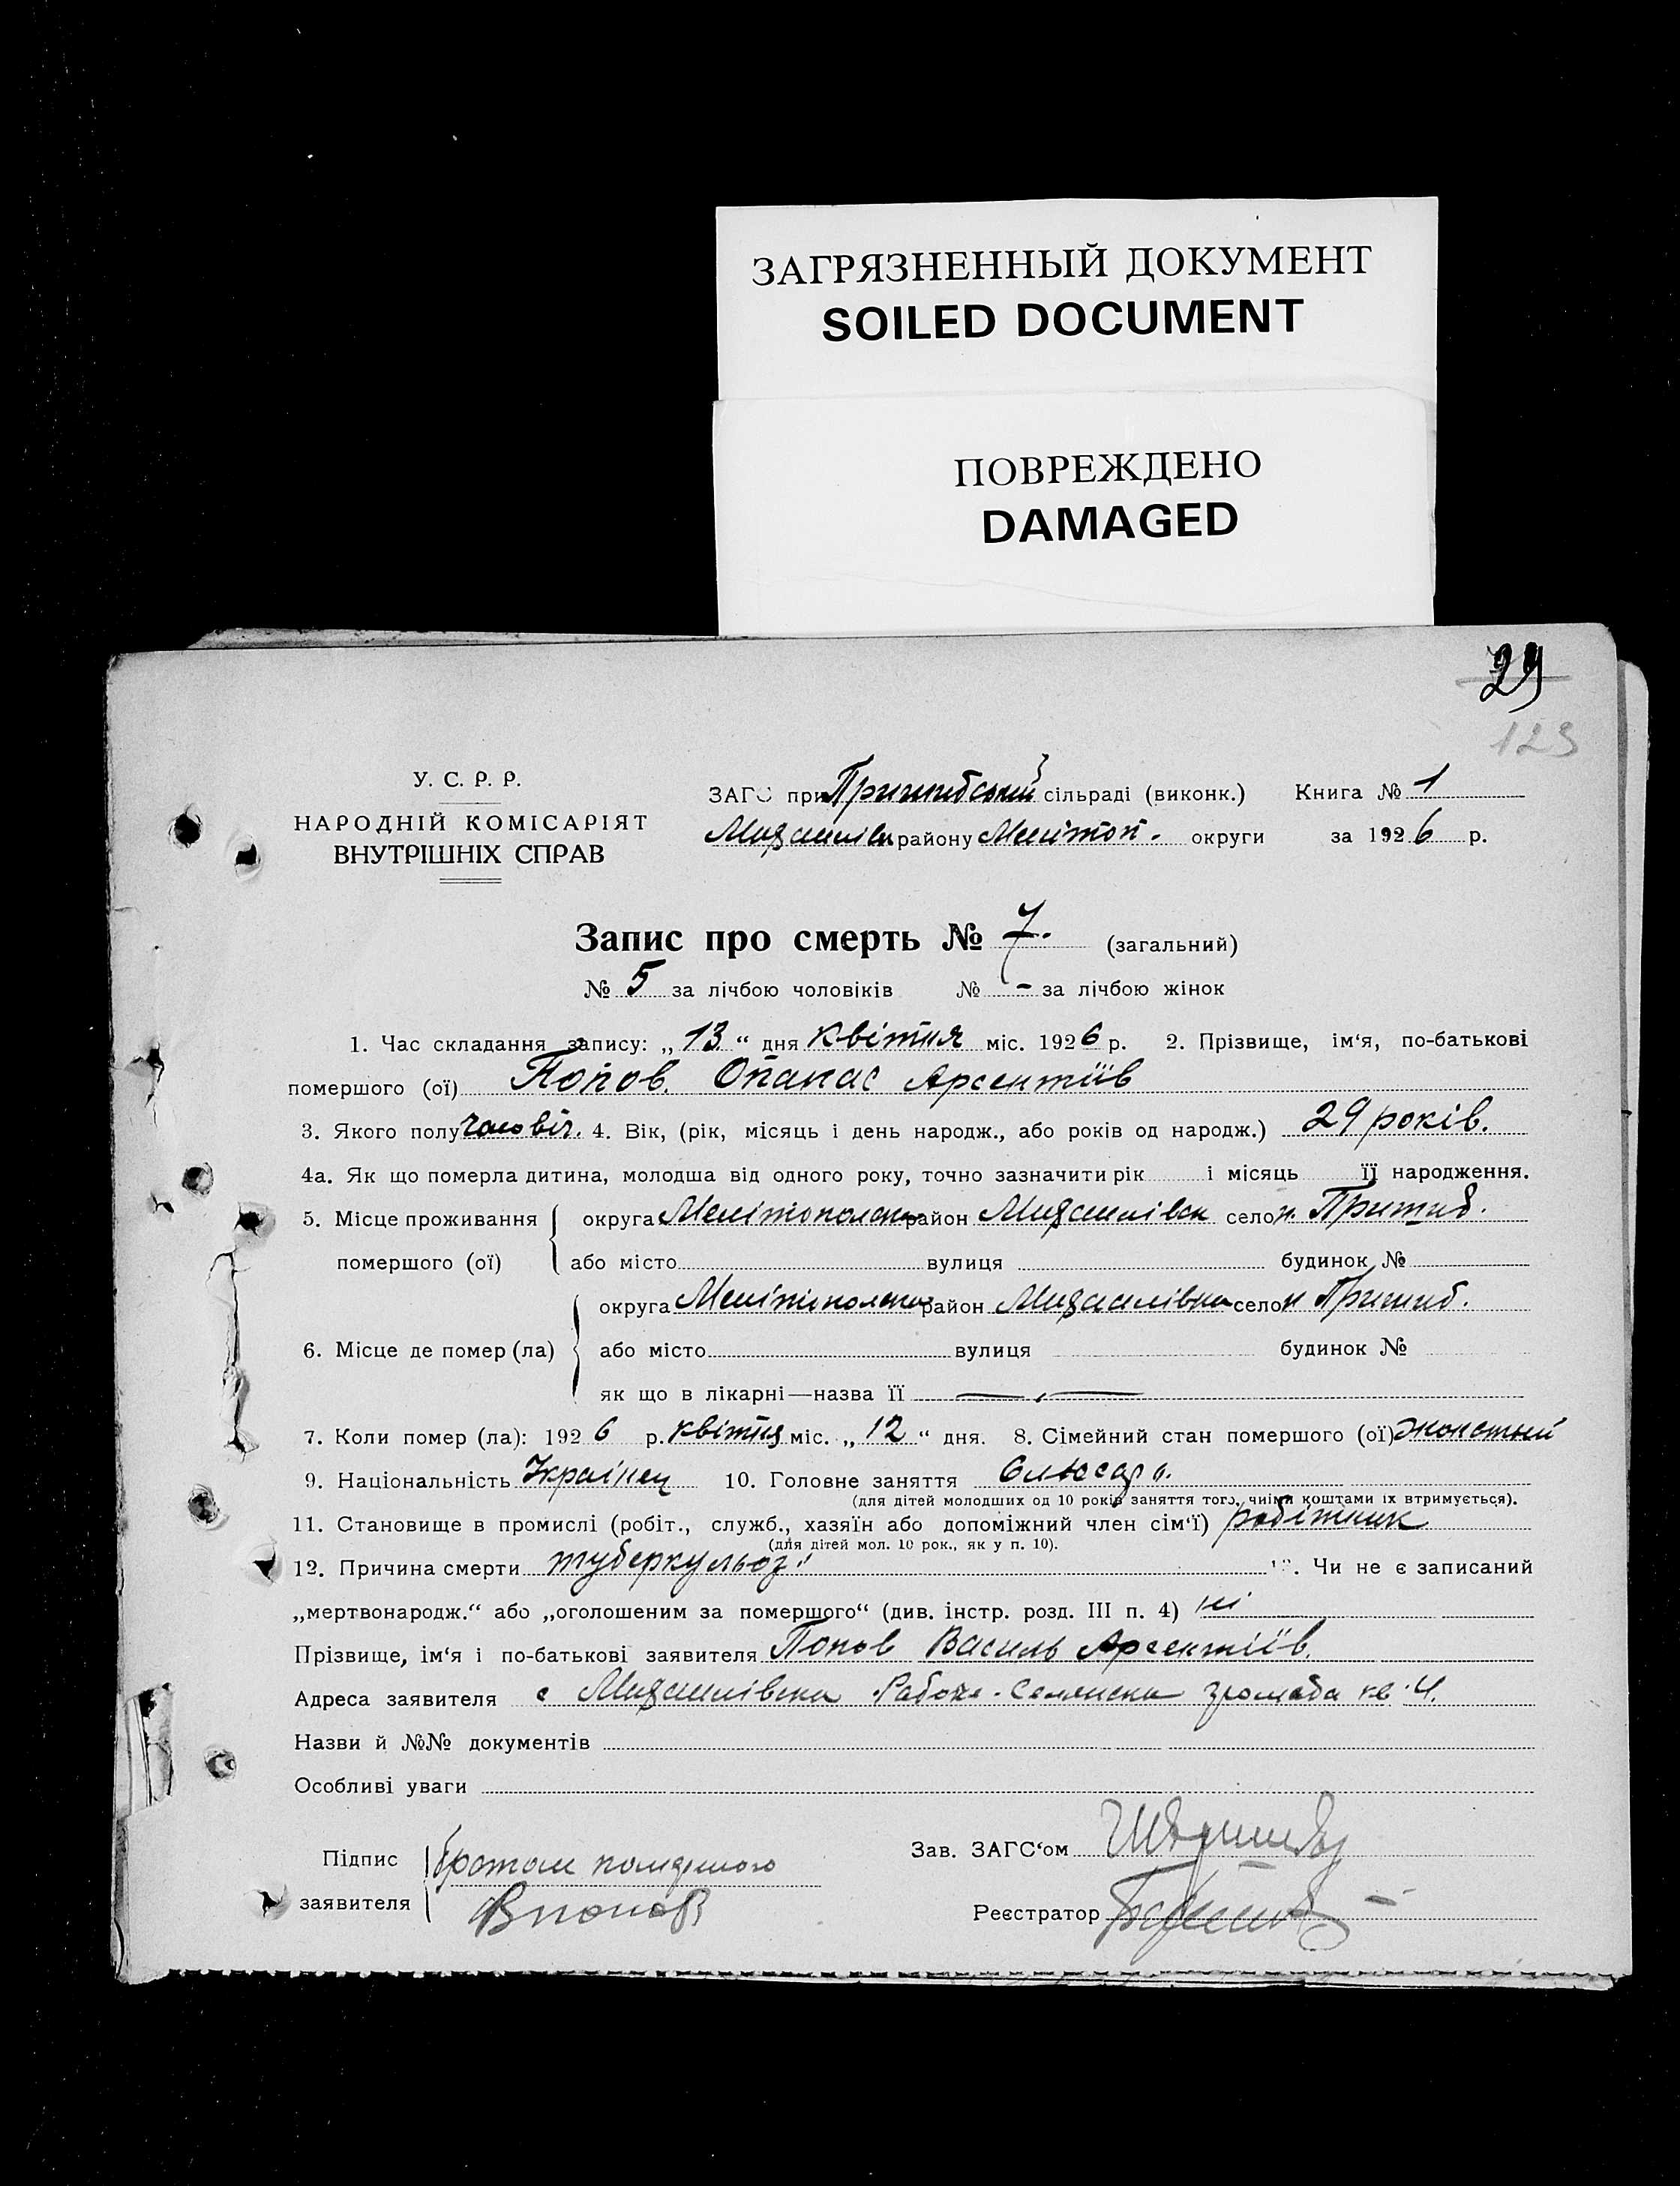 ЗАГРЯЗНЕННЫЙ ДОКУМЕНТ
SOILED DOCUMENT
ПОВРЕЖДЕНО
DAMAGED
29
123
У. С. Р. Р.
НАРОДНІЙ КОМІСАРІЯТ
ВНУТРІШНІХ СПРАВ
ЗАГС при Пришибський сільраді (виконк.) Книга № 1
Михайлівск району Меліто́п. округи за 1926 р.
Запис про смерть № 7. (загальний)
№ 5 за лічбою чоловіків № - за лічбою жінок
1. Час складання запису: „ 13 “ дня квітня міс. 1926 р. 2. Прізвище, ім‘я, по-батькові
помершого (ої) Попов. Опанас Арсентіїв
3. Якого полу чоловіч. 4. Вік, (рік, місяць і день народж., або років од народж.) 29 років.
4а. Як що померла дитина, молодша від одного року, точно зазначити рік і місяць її народження.
5. Місце проживання округа Мелітопольськ район Михайлівск село н. Пришиб.
помершого (ої) або місто вулиця будинок №
округа Мелітопольськ район Михайлівка село н Пришиб.
6. Місце де помер (ла) або місто вулиця будинок №
як що в лікарні—назва її
7. Коли помер (ла): 1926 р. квітня міс. „ 12 “ дня. 8. Сімейний стан помершого (ої) жонатый
9. Національність Українец 10. Головне заняття Слюсарь.
(для дітей молодших од 10 років заняття того, чиїми коштами їх втримується).
11. Становище в промислі (робіт., служб., хазяїн або допоміжний член сім‘ї) робітник
(для дітей мол. 10 рок., як у п. 10).
12. Причина смерти туберкульоз . Чи не є записаний
„мертвонародж.“ або „оголошеним за помершого“ (див. інстр. розд. III п. 4) ні
Прізвище, ім‘я і по-батькові заявителя Попов Василь Арсентіїв.
Адреса заявителя с Михайлівка Рабоче-Селянска громада кв. 4.
Назви й №№ документів
Особливі уваги
Підпис братом
заявителя В Попов
Зав. ЗАГС‘ом
Реєстратор